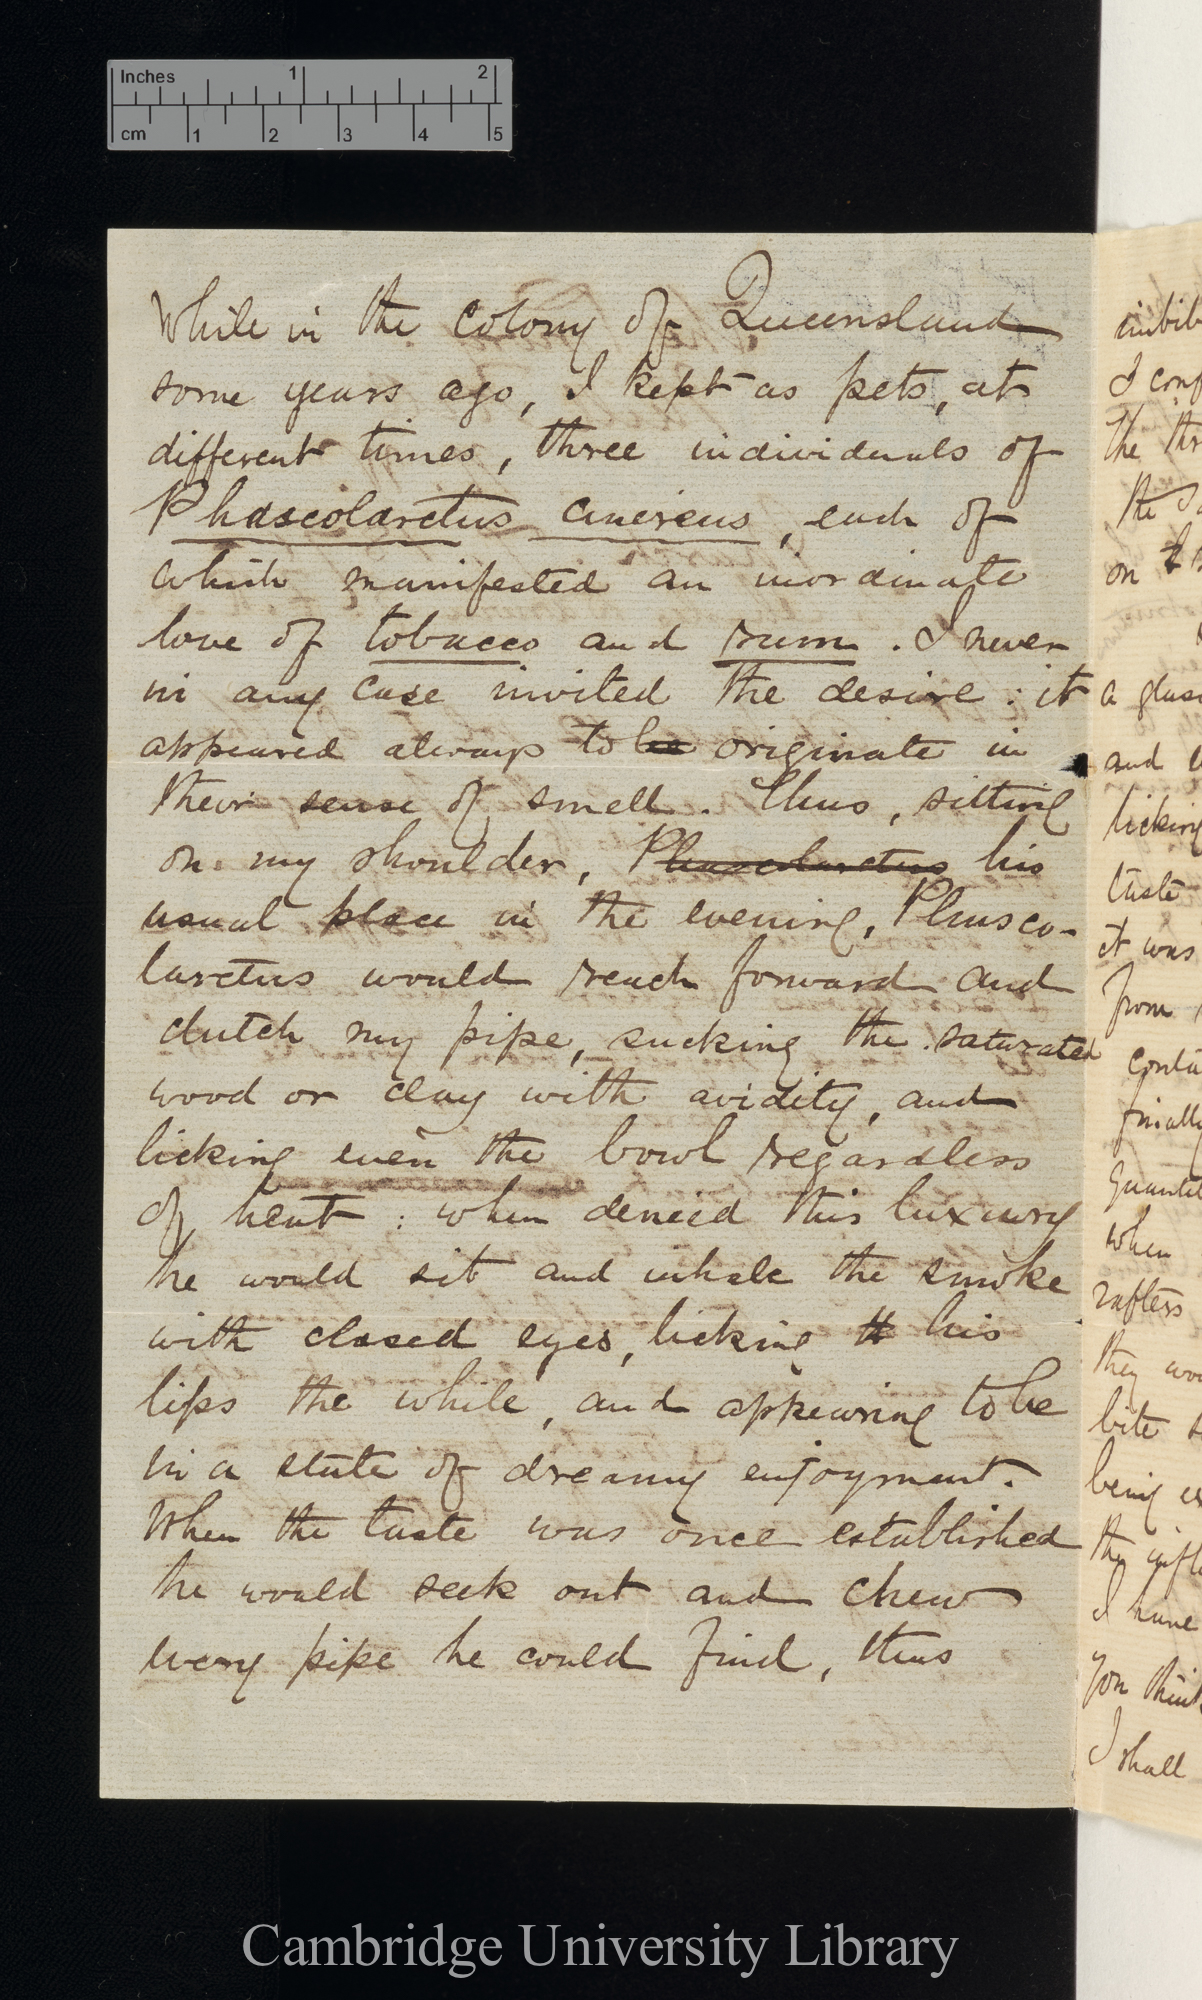 Inches 1 2
cm 1 2 3 4 5
While in the colony of Queensland
some years ago, I kept as pets, at
different times, three individuals of
Phascolarctus cinereus, each of
which manifested an inordinate
love of tobacco and rum. I never
in any case invited the desire: it
appeared always to be originate in
their sense of smell. Thus, sitting
on my shoulder, Phascolarctus his
usual place in the evening, Phasco-
larctus would reach forward and
clutch my pipe, sucking the saturated
wood or clay with avidity, and
licking even the bowl regardless
of heat: when denied this luxury
he would sit and inhale the smoke
with closed eyes, licking th his
lips the while, and appearing to be
in a state of dreamy enjoyment.
When the taste was once established
he would seek out and chew
every pipe he could find, thus
imbib
I conf
the thr
the
on
a glas
and
licking
taste
it was
from
conta
finally
quantit
when
rafters
they wou
bite
being
the infl
I have
you think
I shall
Cambridge University Library